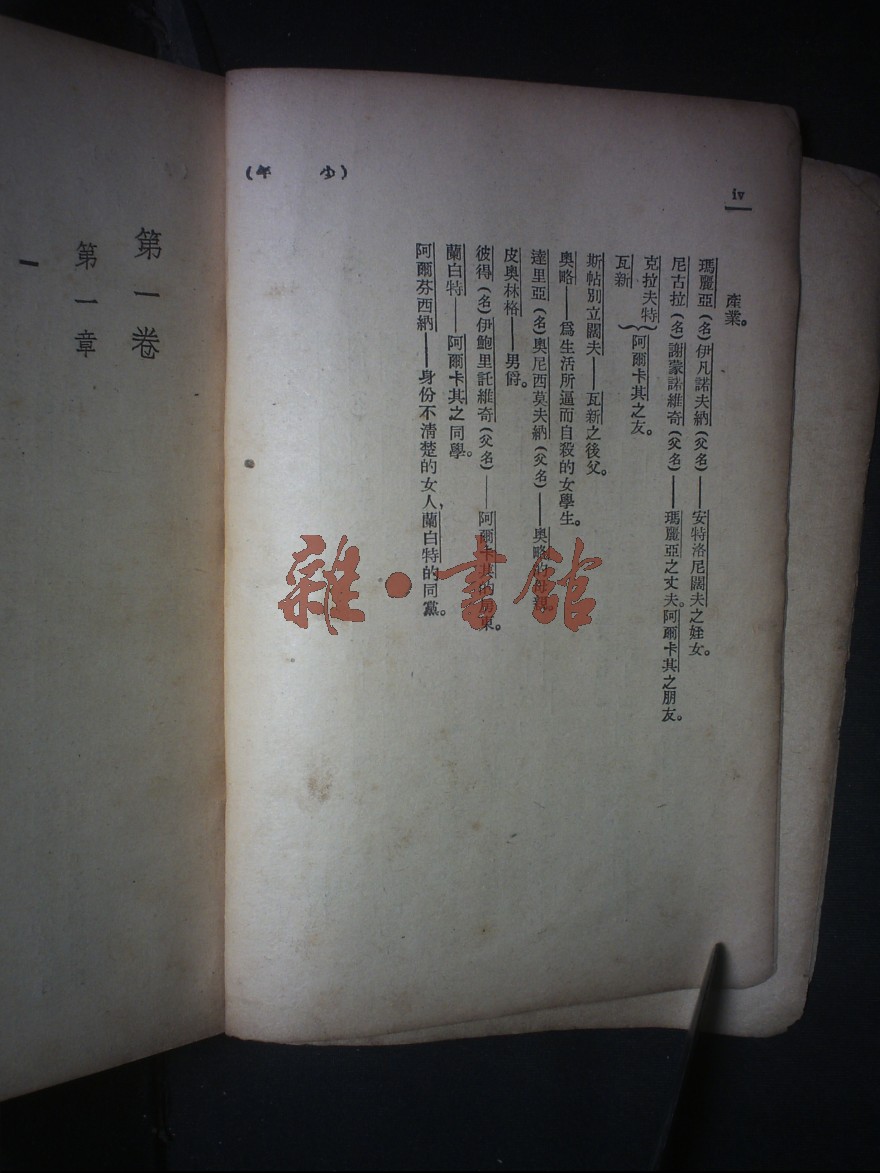 iv
(少年)
產業。
瑪麗亞(名)伊凡諾夫納(父名)——安特洛尼闊夫之姪女。
尼古拉(名)謝蒙諾維奇(父名)——瑪麗亞之丈夫。阿爾卡其之朋友。
克拉夫特
瓦新
}阿爾卡其之友。
斯帖別立闊夫——瓦新之後父。
奧略——爲生活所逼而自殺的女學生。
達里亞(名)奧尼西莫夫納(父名)——奧略的母親。
皮奧林格——男爵。
彼得(名)伊鮑里託維奇(父名)——阿爾卡其的房東。
蘭白特——阿爾卡其之同學。
阿爾芬西納——身份不清楚的女人,蘭白特的同黨。
第一卷
第一章
一
雜·書館